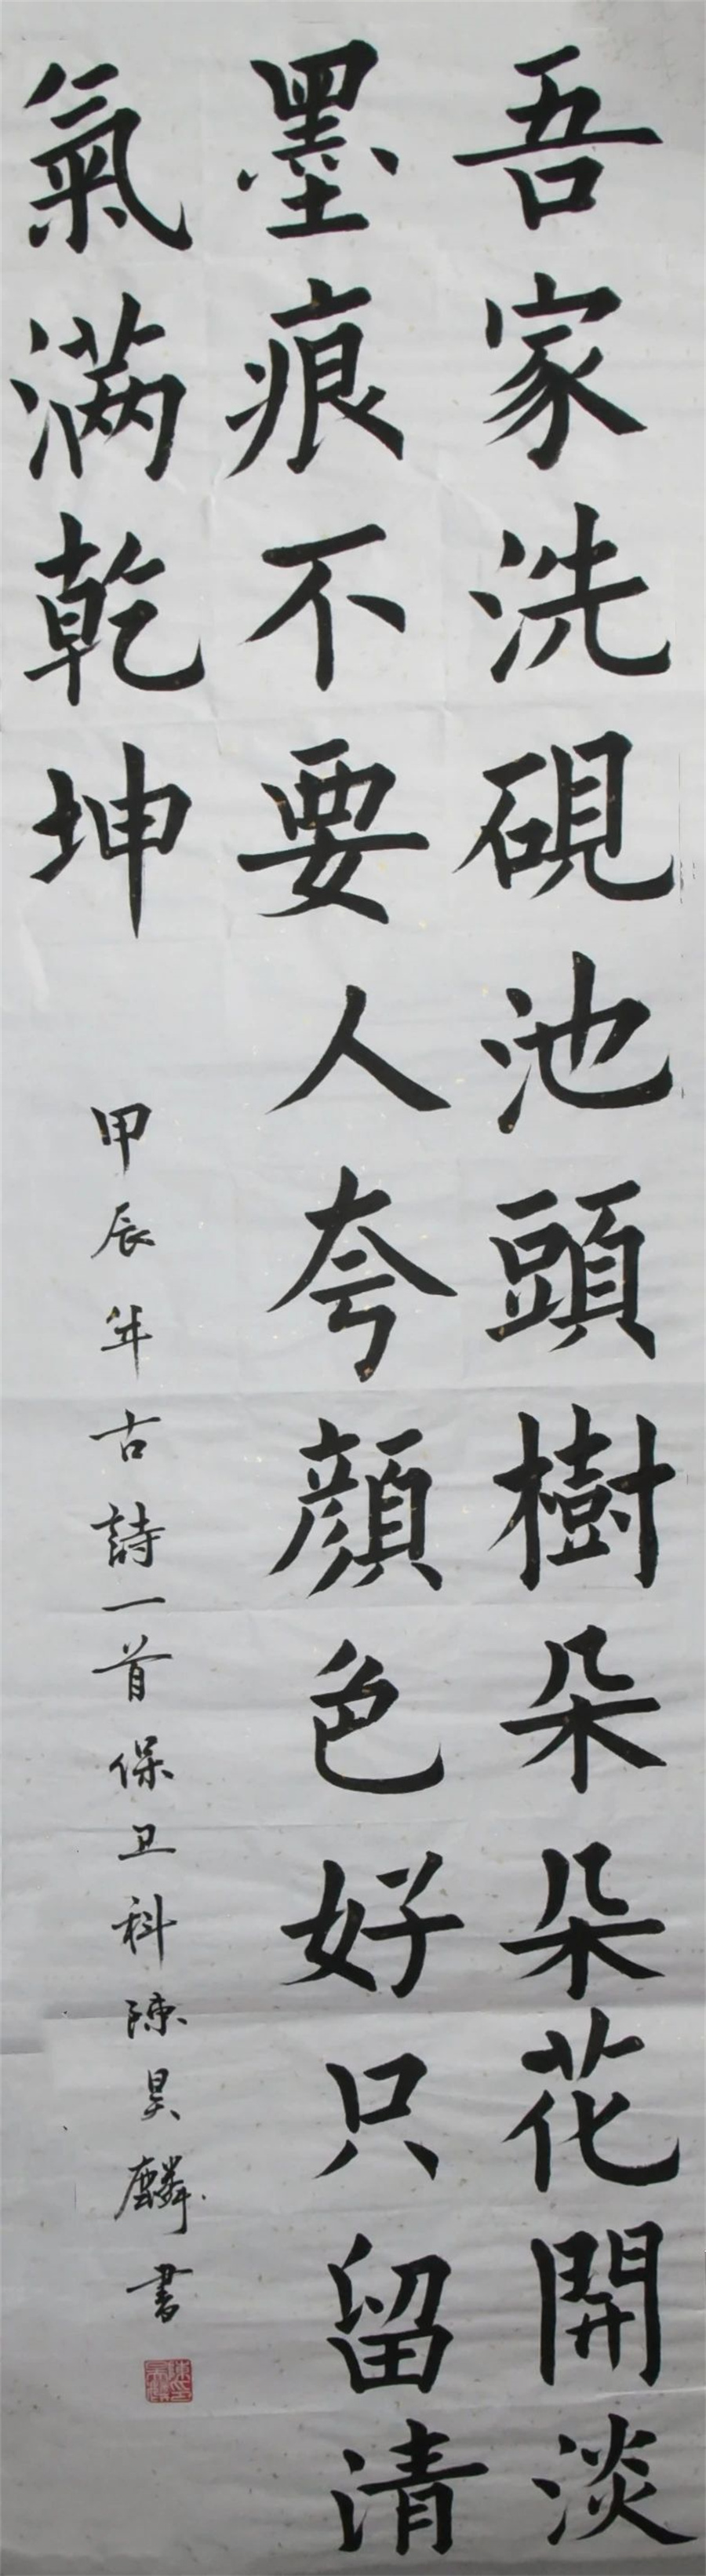 吾家洗硯池頭樹朵朵花開淡
墨痕不要人夸顏色好只留清
氣滿乾坤
甲辰年古詩一首保卫科陳昊麟書